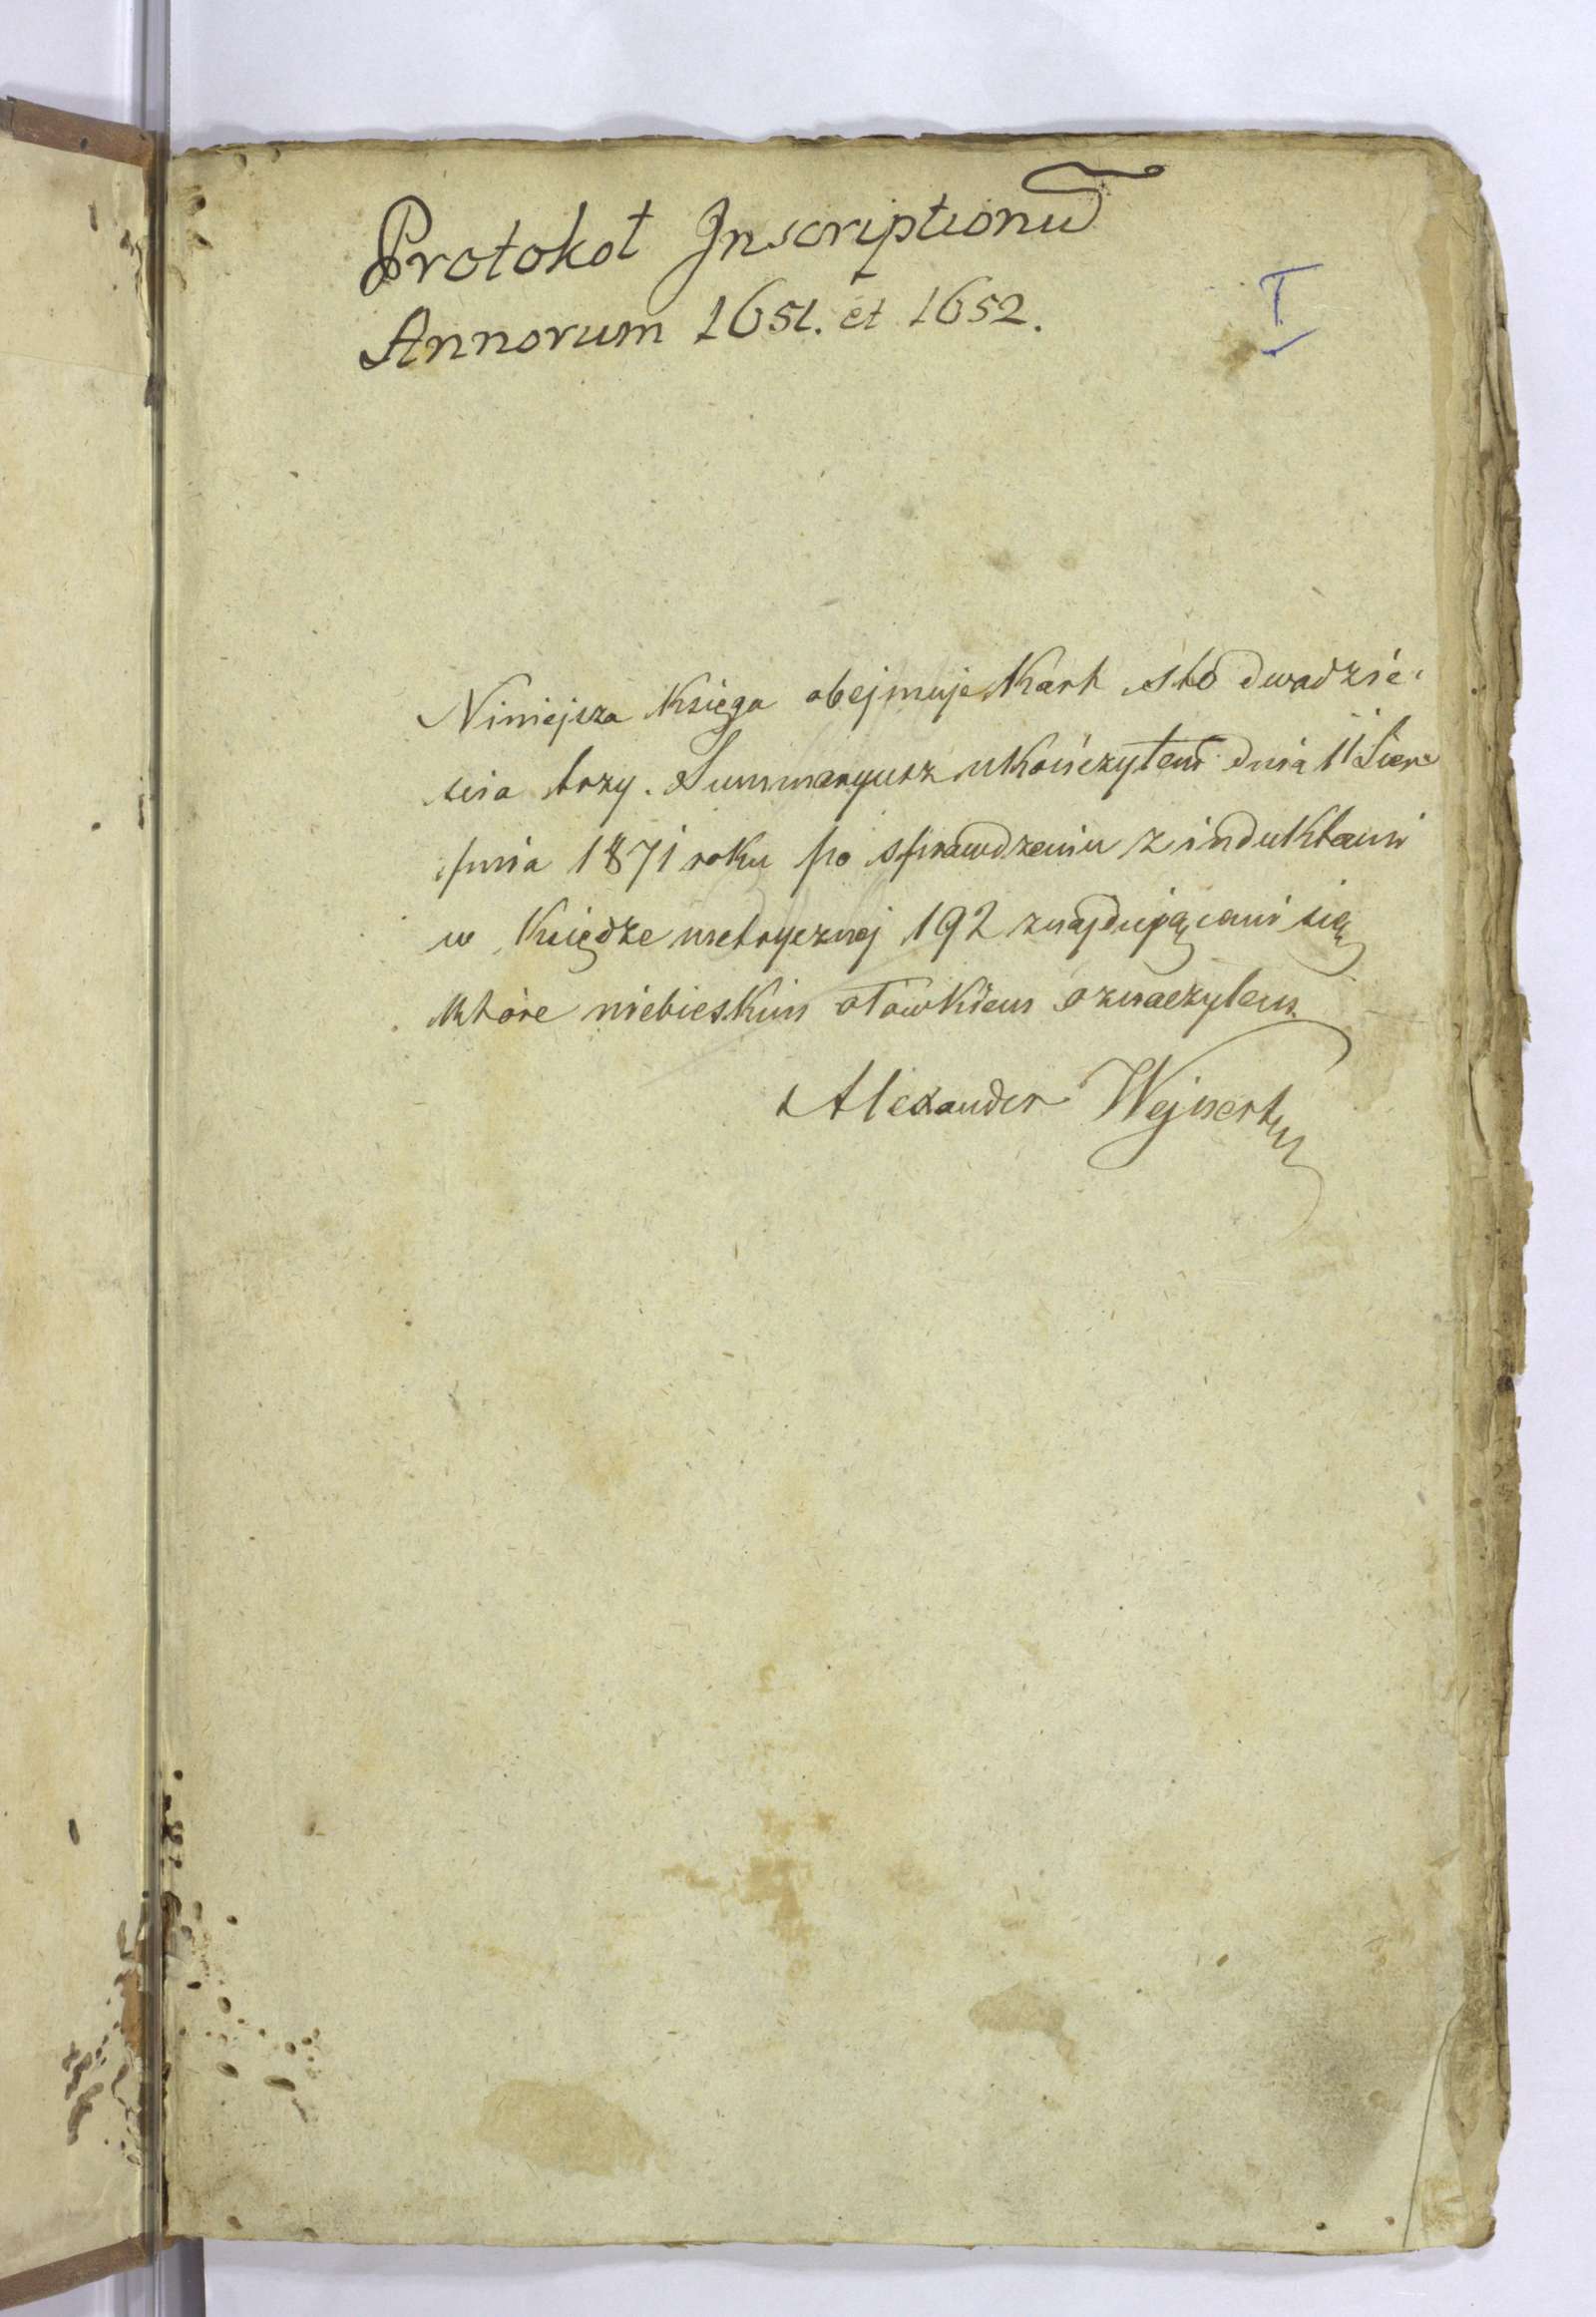 Protokoł Inscriptionū
Annorum 1651. et 1652.
I
Niniejsza Księga obejmuje Kart sto dwadzie-
ścia trzy. Summaryusz ukończyłem dnia 11 Sier-
pnia 1871 roku po sprawdzeniu z induktami
w Księdze metrycznej 192 znajdującemi się
które niebieskim ołówkiem oznaczyłem
Alexander Wejnert